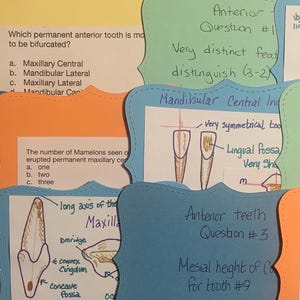 Which permanent anterior tooth is mo
to be bifurcated?
a. Maxillary Central
b. Mandibular Lateral
c. Maxillary Lateral
d. Mandibular Can
Anterior
Question #1
Very distinct feat
distinguish (3-2)
Mandibular Central Inc
very symmetrical too
Lingual Fossa
Very Sha
The number of Mamelons seen o
erupted permanent maxillary ce
a. one
b. two
c. three
long axis of the
Maxilla
convex
Cingulum
Concave
Fossa
Anterior teeth
Question #3
Mesial height of Co
for tooth #9